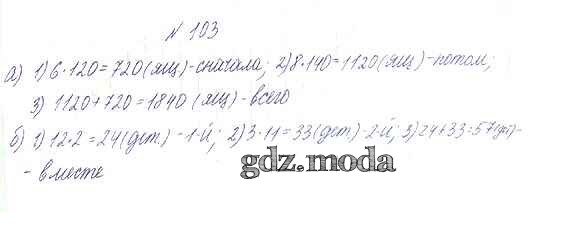 № 103
а) 1) 6·120=720(ящ)-сначала; 2) 8·140=1120(ящ)-потом;
3) 1120+720=1840 (ящ)-всего
б) 1) 12·2=24(дет.) -1-й; 2) 3·11=33(дет.)-2-й; 3) 24+33=57(дет)-
- вместе
gdz.moda